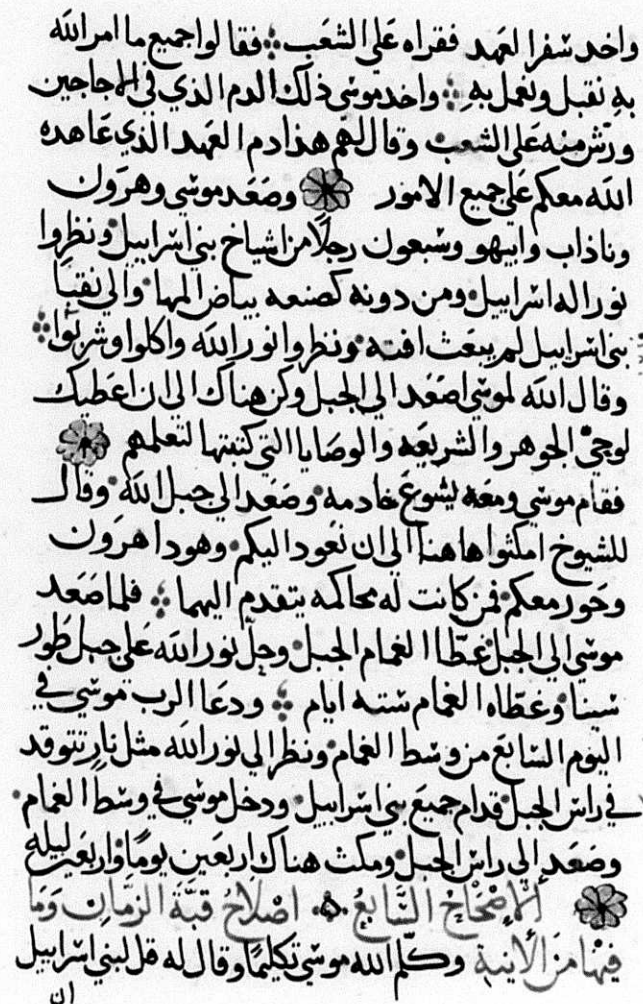 واخد سفر العهد فقراه علي الشعب فقالوا جميع ما امر الله
به نقبل ونعمل به واخد موسي ذلك الدم الذي في الاجاجين
ورش منه علي الشعب وقال لهم هذا دم العهد الذي عاهده
الله معكم علي جميع الامور وصعد موسي وهرون
وناذاب وابيهو وسبعون رجلًا من اشياخ بني اسراييل ونظروا
نور اله اسراييل ومن دونه كصنعه بياض المها والي نقبا
بني اسراييل لم يبعث افته ونظروا نور الله واكلوا وشربوا
وقال الله لموسي اصعد الي الجبل وكن هناك الي ان اعطيك
لوحي الجوهر والشريعه والوصايا التي كتبتها لتعلمهم
فقام موسي ومعه يشوع خادمه وصعد الي جبل الله وقال
للشيوخ امكثوا هاهنا الي ان نعود اليكم وهوداهرون
وحور معكم فمن كانت له محاكمه يتقدم اليهما فلما صعد
موسي الي الجبل غطا الغمام الجبل وحل نور الله علي جبل طور
سينا وغطاه الغمام ستة ايام ودعا الرب موسي في
اليوم السابع من وسط الغمام ونظر الي نور الله مثل نار تتوقد
في راس الجبل قدام جميع بني اسراييل ودخل موسي في وسط الغمام
وصعد الي راس الجبل ومكث هناك اربعين يومًا واربعين ليله
الاصحاح السابع اصلاح قبة الزمان وما
فيها من الانية وكلم الله موسي تكليمًا وقال له قل لبني اسراييل
ان